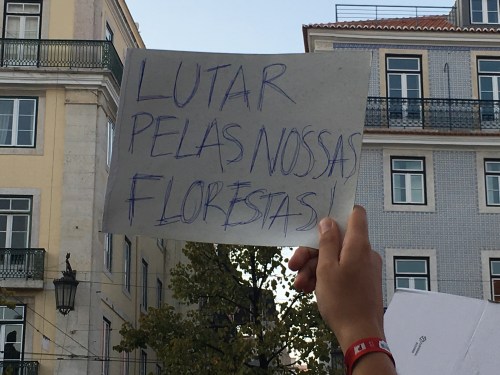 LUTAR
PELAS NOSSAS
FLORESTAS!